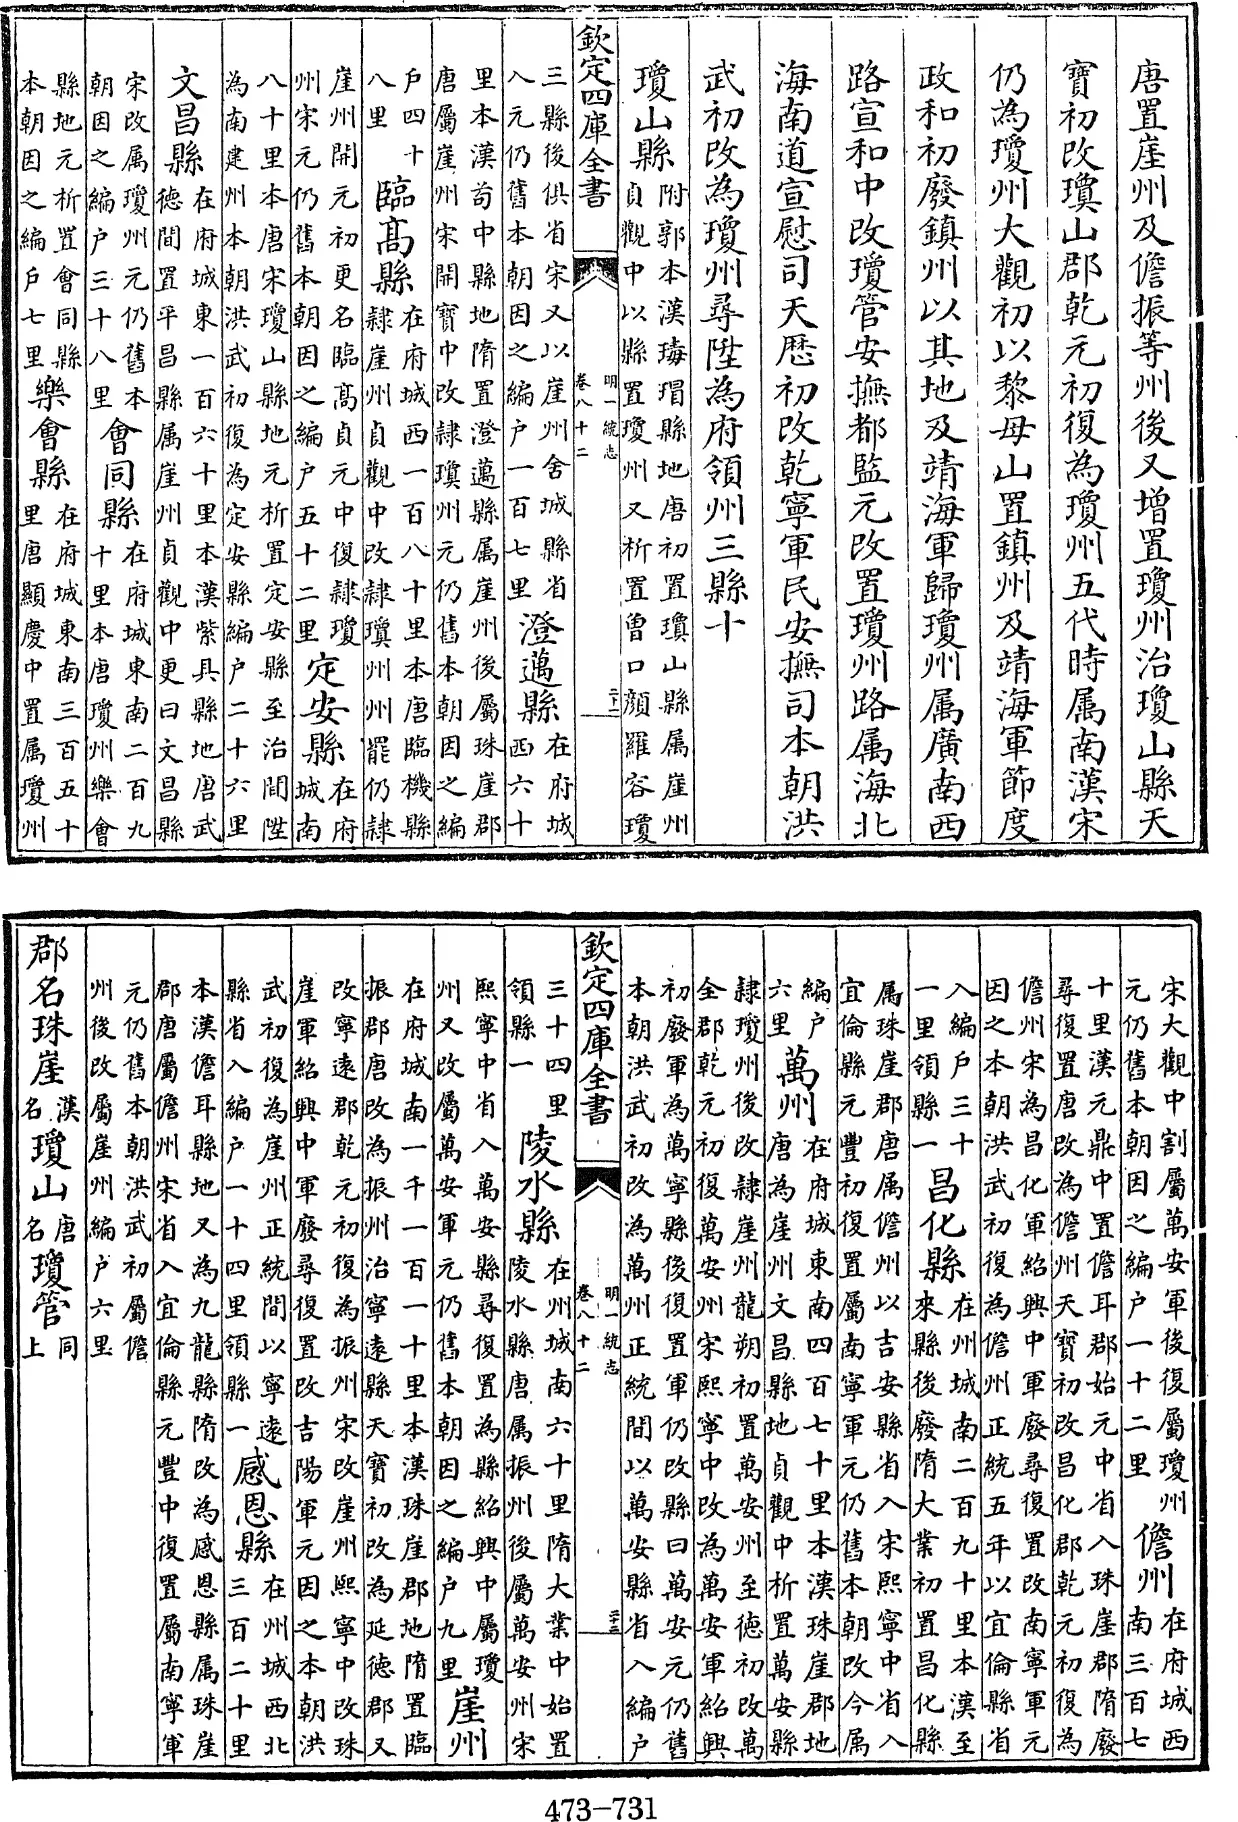 唐置崖州及儋振等州後又增置瓊州治瓊山縣天
寶初改瓊山郡乾元初復為瓊州五代時属南漢宋
仍為瓊州大觀初以黎母山置鎮州及靖海軍節度
政和初廢鎮州以其地及靖海軍歸瓊州属廣南西
路宣和中改瓊管安撫都監元改置瓊州路属海北
海南道宣慰司天厯初改乾寧軍民安撫司本朝洪
武初改為瓊州尋陞為府領州三縣十
瓊山縣附郭本漢瑇瑁縣地唐初置瓊山縣属崖州
貞觀中以縣置瓊州又析置曾口顔羅容瓊
欽定四庫全書
明一統志
卷八十二
二十二
三縣後俱省宋又以崖州舍城縣省
入元仍舊本朝因之編户一百七里
澄邁縣在府城
西六十
里本漢苟中縣地隋置澄邁縣属崖州後屬珠崖郡
唐屬崖州宋開寶中改隷瓊州元仍舊本朝因之編
户四十
八里
臨髙縣在府城西一百八十里本唐臨機縣
隷崖州貞觀中改隷瓊州州罷仍隷
崖州開元初更名臨髙貞元中復隷瓊
州宋元仍舊本朝因之編户五十二里
定安縣在府
城南
八十里本唐宋瓊山縣地元析置定安縣至治間陞
為南建州本朝洪武初復為定安縣編户二十六里
文昌縣在府城東一百六十里本漢紫具縣地唐武
德間置平昌縣属崖州貞觀中更曰文昌縣
宋改属瓊州元仍舊本
朝因之編户三十八里
會同縣在府城東南二百九
十里本唐瓊州樂會
縣地元析置會同縣
本朝因之編户七里
樂會縣在府城東南三百五十
里唐顯慶中置属瓊州
宋大觀中割屬萬安軍後復屬瓊州
元仍舊本朝因之編户一十二里
儋州在府城西
南三百七
十里漢元鼎中置儋耳郡始元中省入珠崖郡隋廢
尋復置唐改為儋州天寶初改昌化郡乾元初復為
儋州宋為昌化軍紹興中軍廢尋復置改南寧軍元
因之本朝洪武初復為儋州正統五年以宜倫縣省
入編户三十
一里領縣一
昌化縣在州城南二百九十里本漢至
來縣後廢隋大業初置昌化縣
属珠崖郡唐属儋州以吉安縣省入宋熙寧中省入
宜倫縣元豐初復置屬南寧軍元仍舊本朝改今属
編户
六里
萬州在府城東南四百七十里本漢珠崖郡地
唐為崖州文昌縣地貞觀中析置萬安縣
隷瓊州後改隷崖州龍朔初置萬安州至德初改萬
全郡乾元初復萬安州宋熙寧中改為萬安軍紹興
初廢軍為萬寧縣後復置軍仍改縣曰萬安元仍舊
本朝洪武初改為萬州正統間以萬安縣省入編户
欽定四庫全書
明一統志
卷八十二
二十三
三十四里
領縣一
陵水縣在州城南六十里隋大業中始置
陵水縣唐属振州後屬萬安州宋
熙寧中省入萬安縣尋復置為縣紹興中屬瓊
州又改屬萬安軍元仍舊本朝因之編户九里
崖州
在府城南一千一百一十里本漢珠崖郡地隋置臨
振郡唐改為振州治寧遠縣天寶初改為延德郡又
改寧遠郡乾元初復為振州宋改崖州熙寧中改珠
崖軍紹興中軍廢尋復置改吉陽軍元因之本朝洪
武初復為崖州正統間以寧遠
縣省入編户一十四里領縣一
感恩縣在州城西北
三百二十里
本漢儋耳縣地又為九龍縣隋改為感恩縣属珠崖
郡唐屬儋州宋省入宜倫縣元豐中復置屬南寧軍
元仍舊本朝洪武初屬儋
州後改屬崖州編户六里
郡名珠崖漢
名
瓊山唐
名
瓊管同
上
473-731